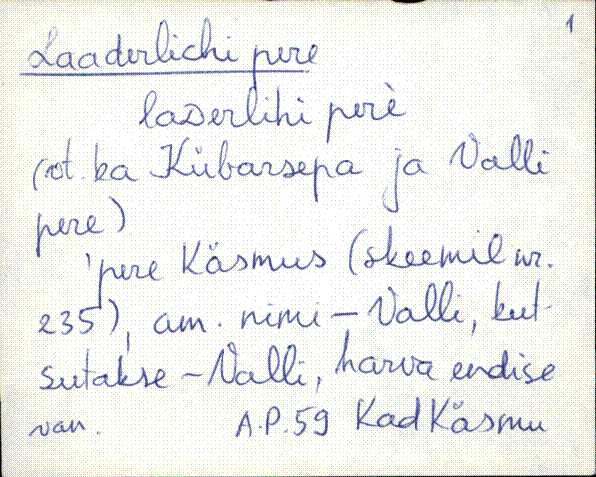 1
Laaderlichi pere
laDerlihi perè
(vt. ka Kübarsepa ja Valli
pere)
'pere Käsmus (skeemil nr.
235), am. nimi – Valli, kut-
sutakse – Valli, harva endise
van. A.P.59 KadKäsmu